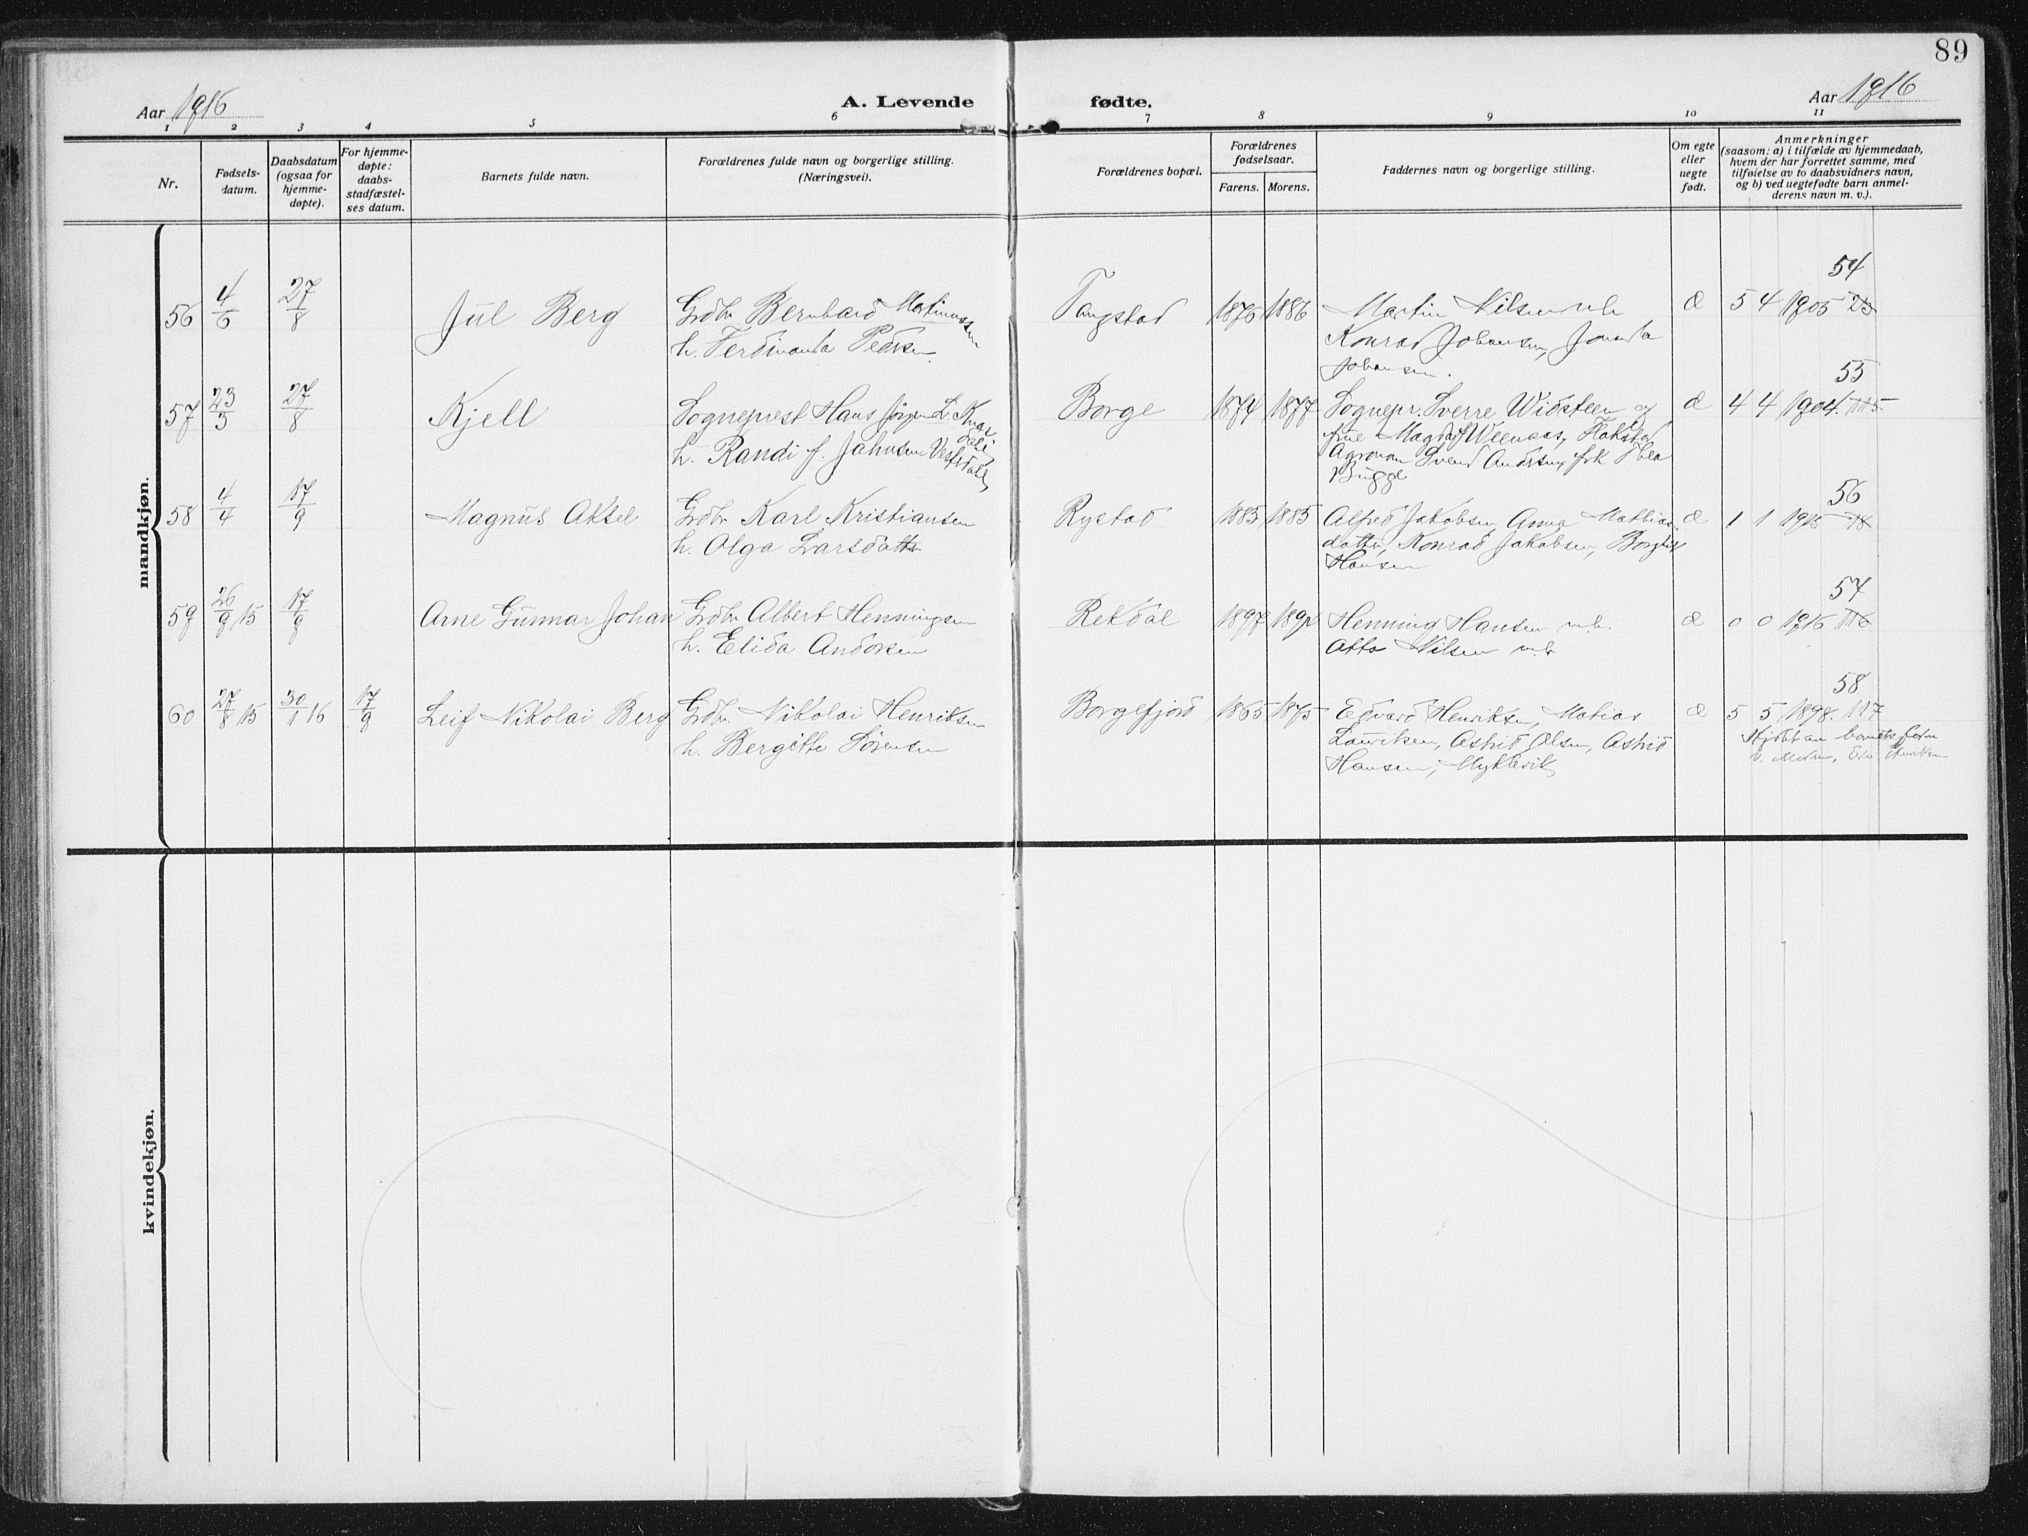 89
Aar 1916
A. Levende fødte.
Aar 1916
1 2 3 4 5 6 7 8 9 10 11
Nr.
Fødsels-
datum.
Daabsdatum
(ogsaa for
hjemme-
døpte).
For hjemme-
døpte:
daabs-
stadfæstel-
ses datum.
Barnets fulde navn.
Forældrenes fulde navn og borgerlige stilling.
(Næringsvei).
Forældrenes bopæl.
Forældrenes
fødselsaar.
Farens. Morens.
Faddernes navn og borgerlige stilling.
Om egte
eller
uegte
født.
Anmerkninger
(saasom: a) i tilfælde av hjemmedaab,
hvem der har forrettet samme, med
tilføielse av to daabsvidners navn,
og b) ved uegtefødte barn anmel-
derens navn m. v.).
mandkjøn.
56 4/6 27/8 Jul Berg
Grdbr Bernhard Martinussen
h. Ferdinanda Pedersen
Tangstad 1876 1886
Martin Nilsen
Konrad Johansen,
Johansen.
æ 5 4 1905
54
57 23/3 27/8 Kjell
Sogneprest Hans Jørgen L.
h. Randi f. Jahnsen
Borge 1874 1877
Sognepr. Sverre Widsteen og
frue Magda f.
Agronom Svend Andersen, frk
Bugge
æ 4 4 1904. 115.
55
58 4/4 17/9 Magnus Aksel
Grdbr Karl Kristiansen
h. Olga Larsdatter
Rystad 1883 1885
Alfred Jakobsen, Anna Mathias-
datter, Konrad Jakobsen,
Hansen
æ 1 1 1915
56
59 26/9 15 17/9 Arne Gunnar Johan
Grdbr Albert Henningsen
h. Elida Andersen
Rekdal 1897 1892
Henning Hansen m.h.
Otto Nilsen m.h.
æ 0 0 1916 116
57
60 27/8 15 30/1 16 17/9 Leif Nikolai Berg
Grdbr. Nikolai Henriksen
h. Bergitte Sørensen
Borgefjord 1865 1875
Edvard Henriksen, Matias
Lauriksen, Astrid Olsen, Astrid
Hansen, Myklevik
æ 5 5 1898. 117
58
Hjdøbt av barnets
kvindekjøn.